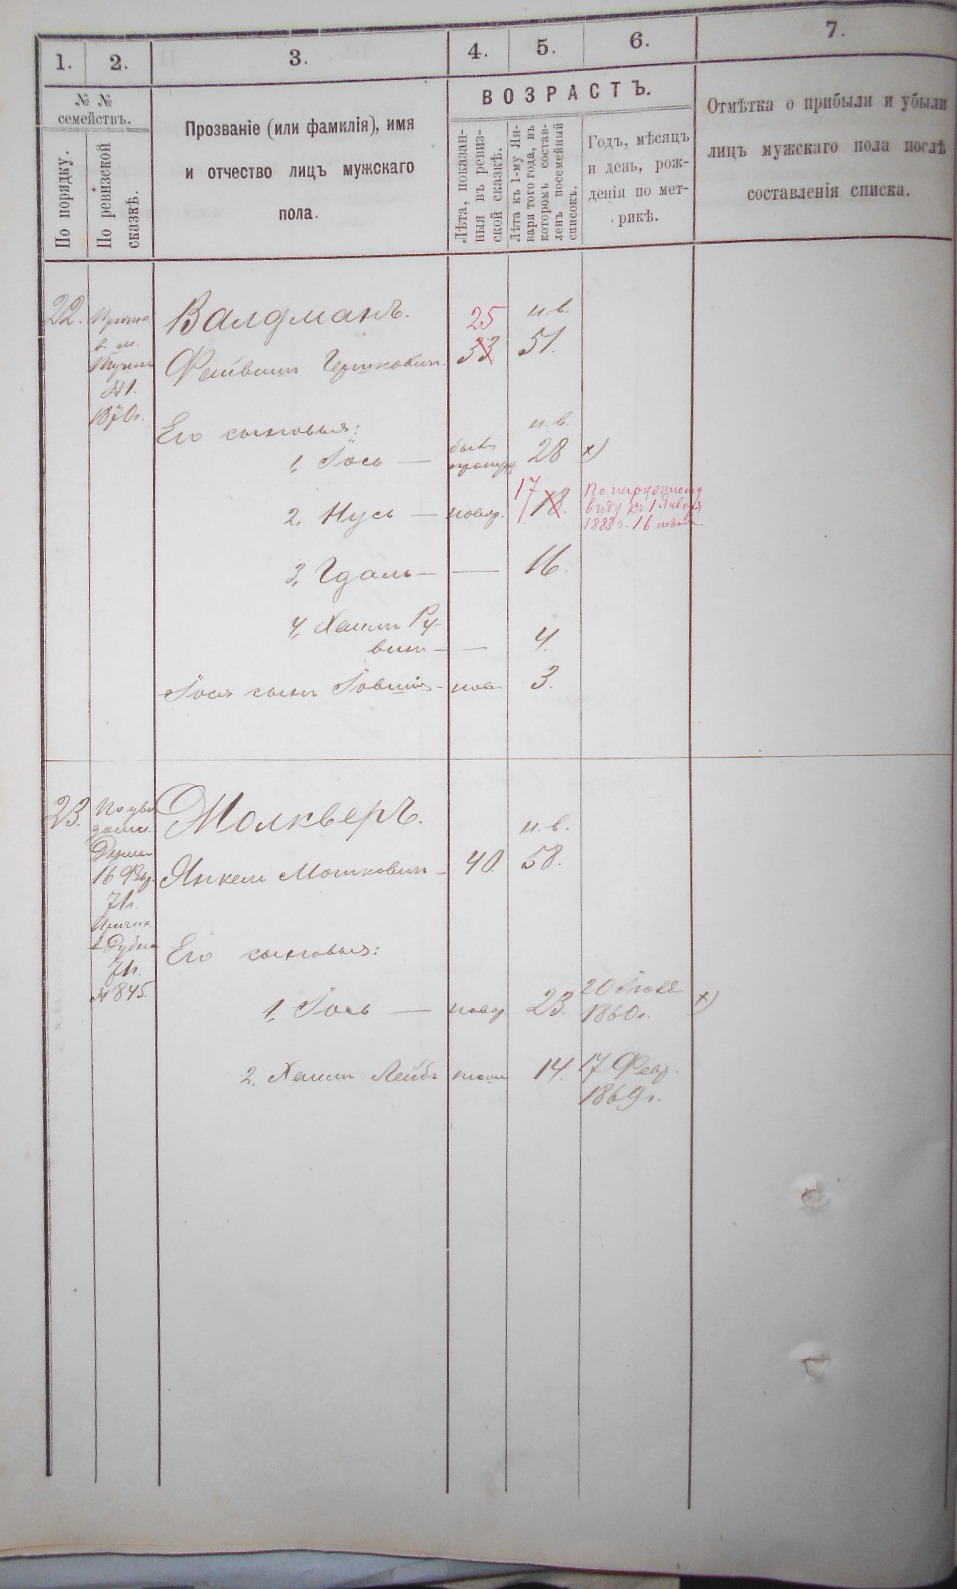 1. 2. 3. 4. 5. 6. 7.
№ №
семействъ.
По порядку.
По ревизской
сказкѣ.
Прозваніе (или фамилія), имя
и отчество лицъ мужскаго
пола.
ВОЗРАСТЪ.
Лѣта, показан-
ныя въ ревиз-
ской сказкѣ.
Лѣта къ 1-му Ян-
варя того года, въ
которомъ состав-
ленъ посемейный
списокъ.
Годъ, мѣсяцъ
и день, рож-
денія по мет-
рикѣ.
Отмѣтка о прибыли и убыли
лицъ мужскаго пола послѣ
составленія списка.
22.
№1.
1870г.
Валдманъ. 25 н.в.
Файвишъ Гершковичъ 33 51.
Его сыновья: н.в.
1, Іось — 28 х)
2, Нусь — новор. 17 18.
По наружному
виду къ 1 Января
1883 г. 16 лѣтъ.
3, Гдаль — — 16.
4, Хаимъ Ру-
винъ — — 4.
Іося сынъ 3.
23.
16 Фев.
71г.
71г.
№ 845.
Молкверъ. н.в.
Янкель Мошковичъ 40. 58.
Его сыновья:
1, Іось — новор. 23. 20
1860г. х)
2, Хаимъ Лейбъ тоже 14. 17 Февр.
1869г.